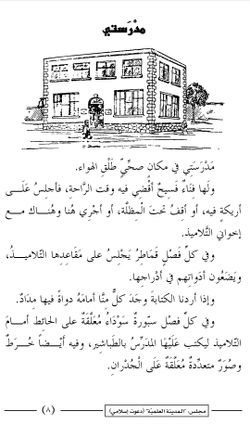 مدْرَستي
مَدْرَسَتي في مكان صحِّيٍّ طَلْقِ الهواء.
ولَها فناءٌ فَسيحٌ أقْضي فيه وقت الرَّاحة، فأجلِسُ عَلَـى
أريكةٍ فيه، أو أقفُ تحتَ المِظلَّة، أو أجْري هُنا وهُناك مـع
إخواني التَّلاميذ.
وفي كلِّ فَصْلٍ قَماطِرُ يَجْلِسُ على مَقاعِدِها التَّلاميـذُ،
ويَضَعُون أدَواتِهم في أدْراجِها.
وإذا أردنا الكتابةَ وجَدَ كلٌّ منَّا أمامَهُ دواةً فيها مِدادٌ.
وفي كلِّ فصْلٍ سبّورةٌ سَوْدَاءُ مُعلَّقةٌ على الحائطِ أمـامَ
التَّلاميذِ ليكتب عَلَيْهَا المدَرِّسُ بالطَّباشِير، وفيه أيْـضاً خُـرَطٌ
وصُوَرٌ متعدِّدةٌ مُعلَّقةٌ عَلى الْجُدْران.
مجلس: "المدينة العلمية" (دعوت إسلامي)
(٨)